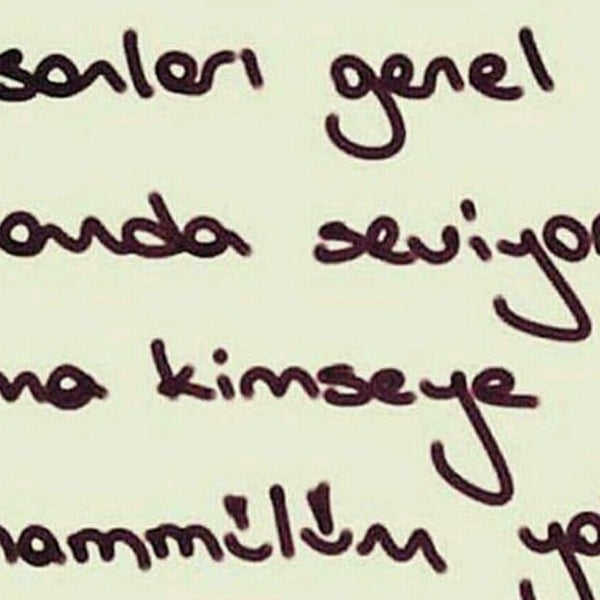 sanları genel
anda seviyo
ma kimseye
hammülüm yo